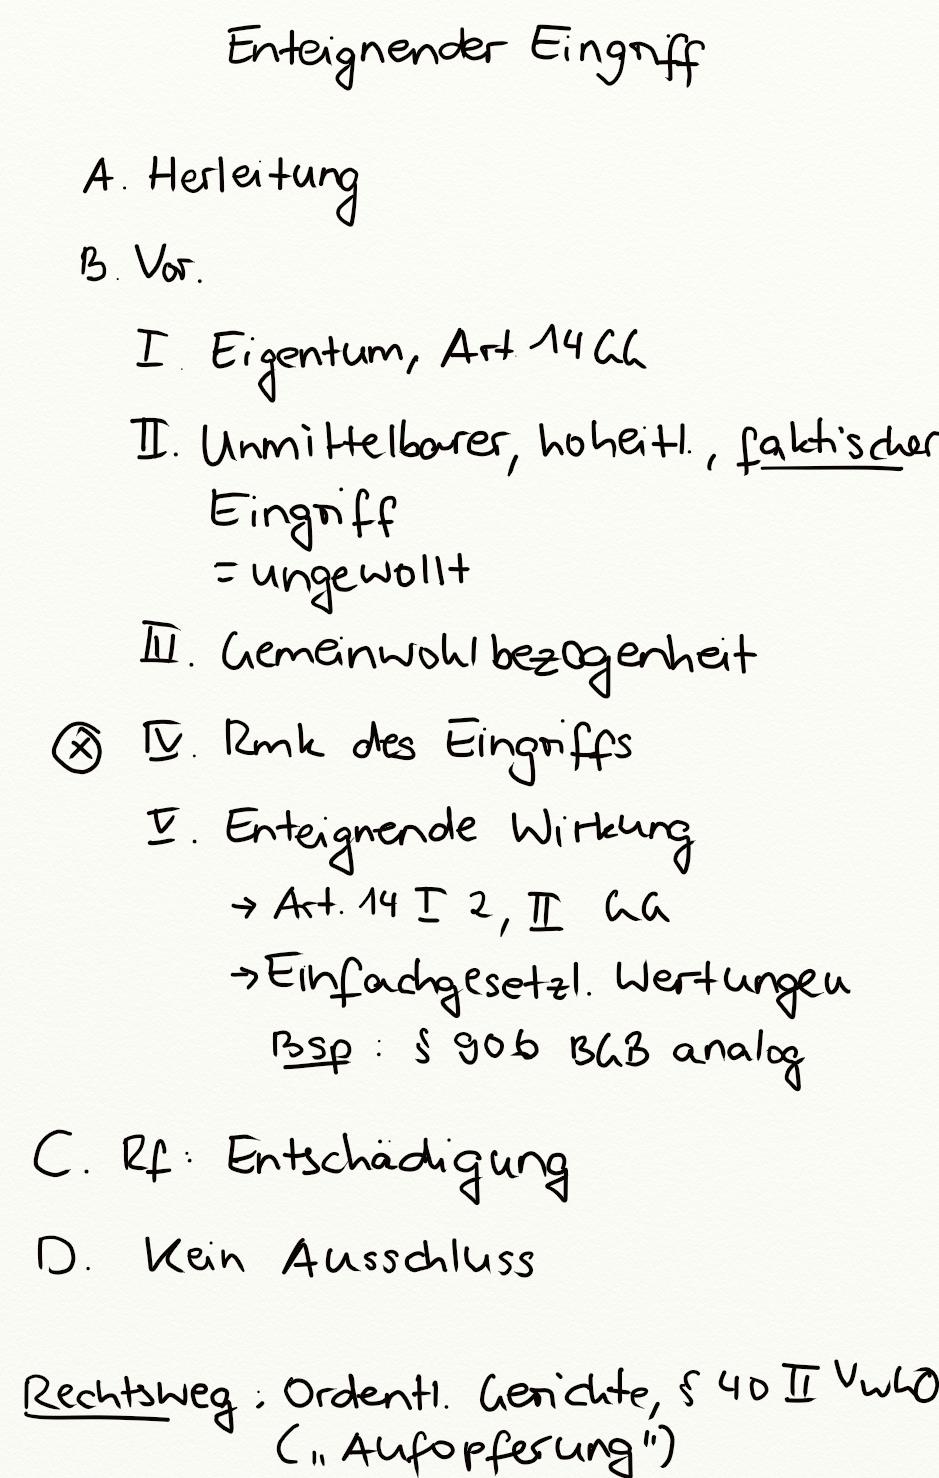 Enteignender Eingriff
A. Herleitung
B. Vor.
I Eigentum, Art. 14 GG
II. Unmittelbarer, hoheitl., faktischer
Eingriff
= ungewollt
III. Gemeinwohlbezogenheit
ⓧ IV. Rmk des Eingriffs
V. Enteignende Wirkung
→ Art. 14 I 2, II GG
→ Einfachgesetzl. Wertungen
Bsp : § 906 BGB analog
C. Rf: Entschädigung
D. Kein Ausschluss
Rechtsweg : Ordentl. Gerichte, § 40 II VwGO
(„Aufopferung")